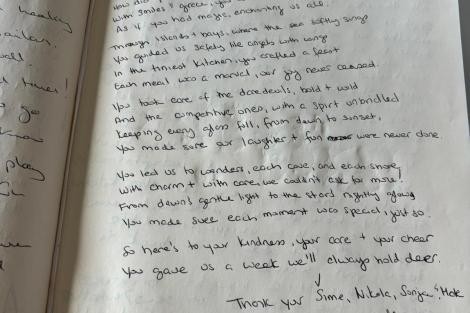 healing
with smiles + grace, you
As if you had magic, enchanting us all.
Through islands + bays, where the sea softly sings
You guided us safely like angels with wings
In the tiniest kitchen, you crafted a feast
Each meal was a marvel, our joy never ceased.
You took care of the daredevils, bold + wild
And the competitive ones, with a spirt unbridled
Keeping every glass full, from dawn to sunset,
You made sure our laughter + fun were never done
You led us to wonders, each cove, and each shore
With charm + with care, we couldn't ask for more!
From dawn's gentle light to the stars nightly glow
You made sure each moment was special, just so.
So here's to your kindness, your care + your cheer
You gave us a week we'll always hold dear.
Thank you Sime, Nikola, Sonja
know
play